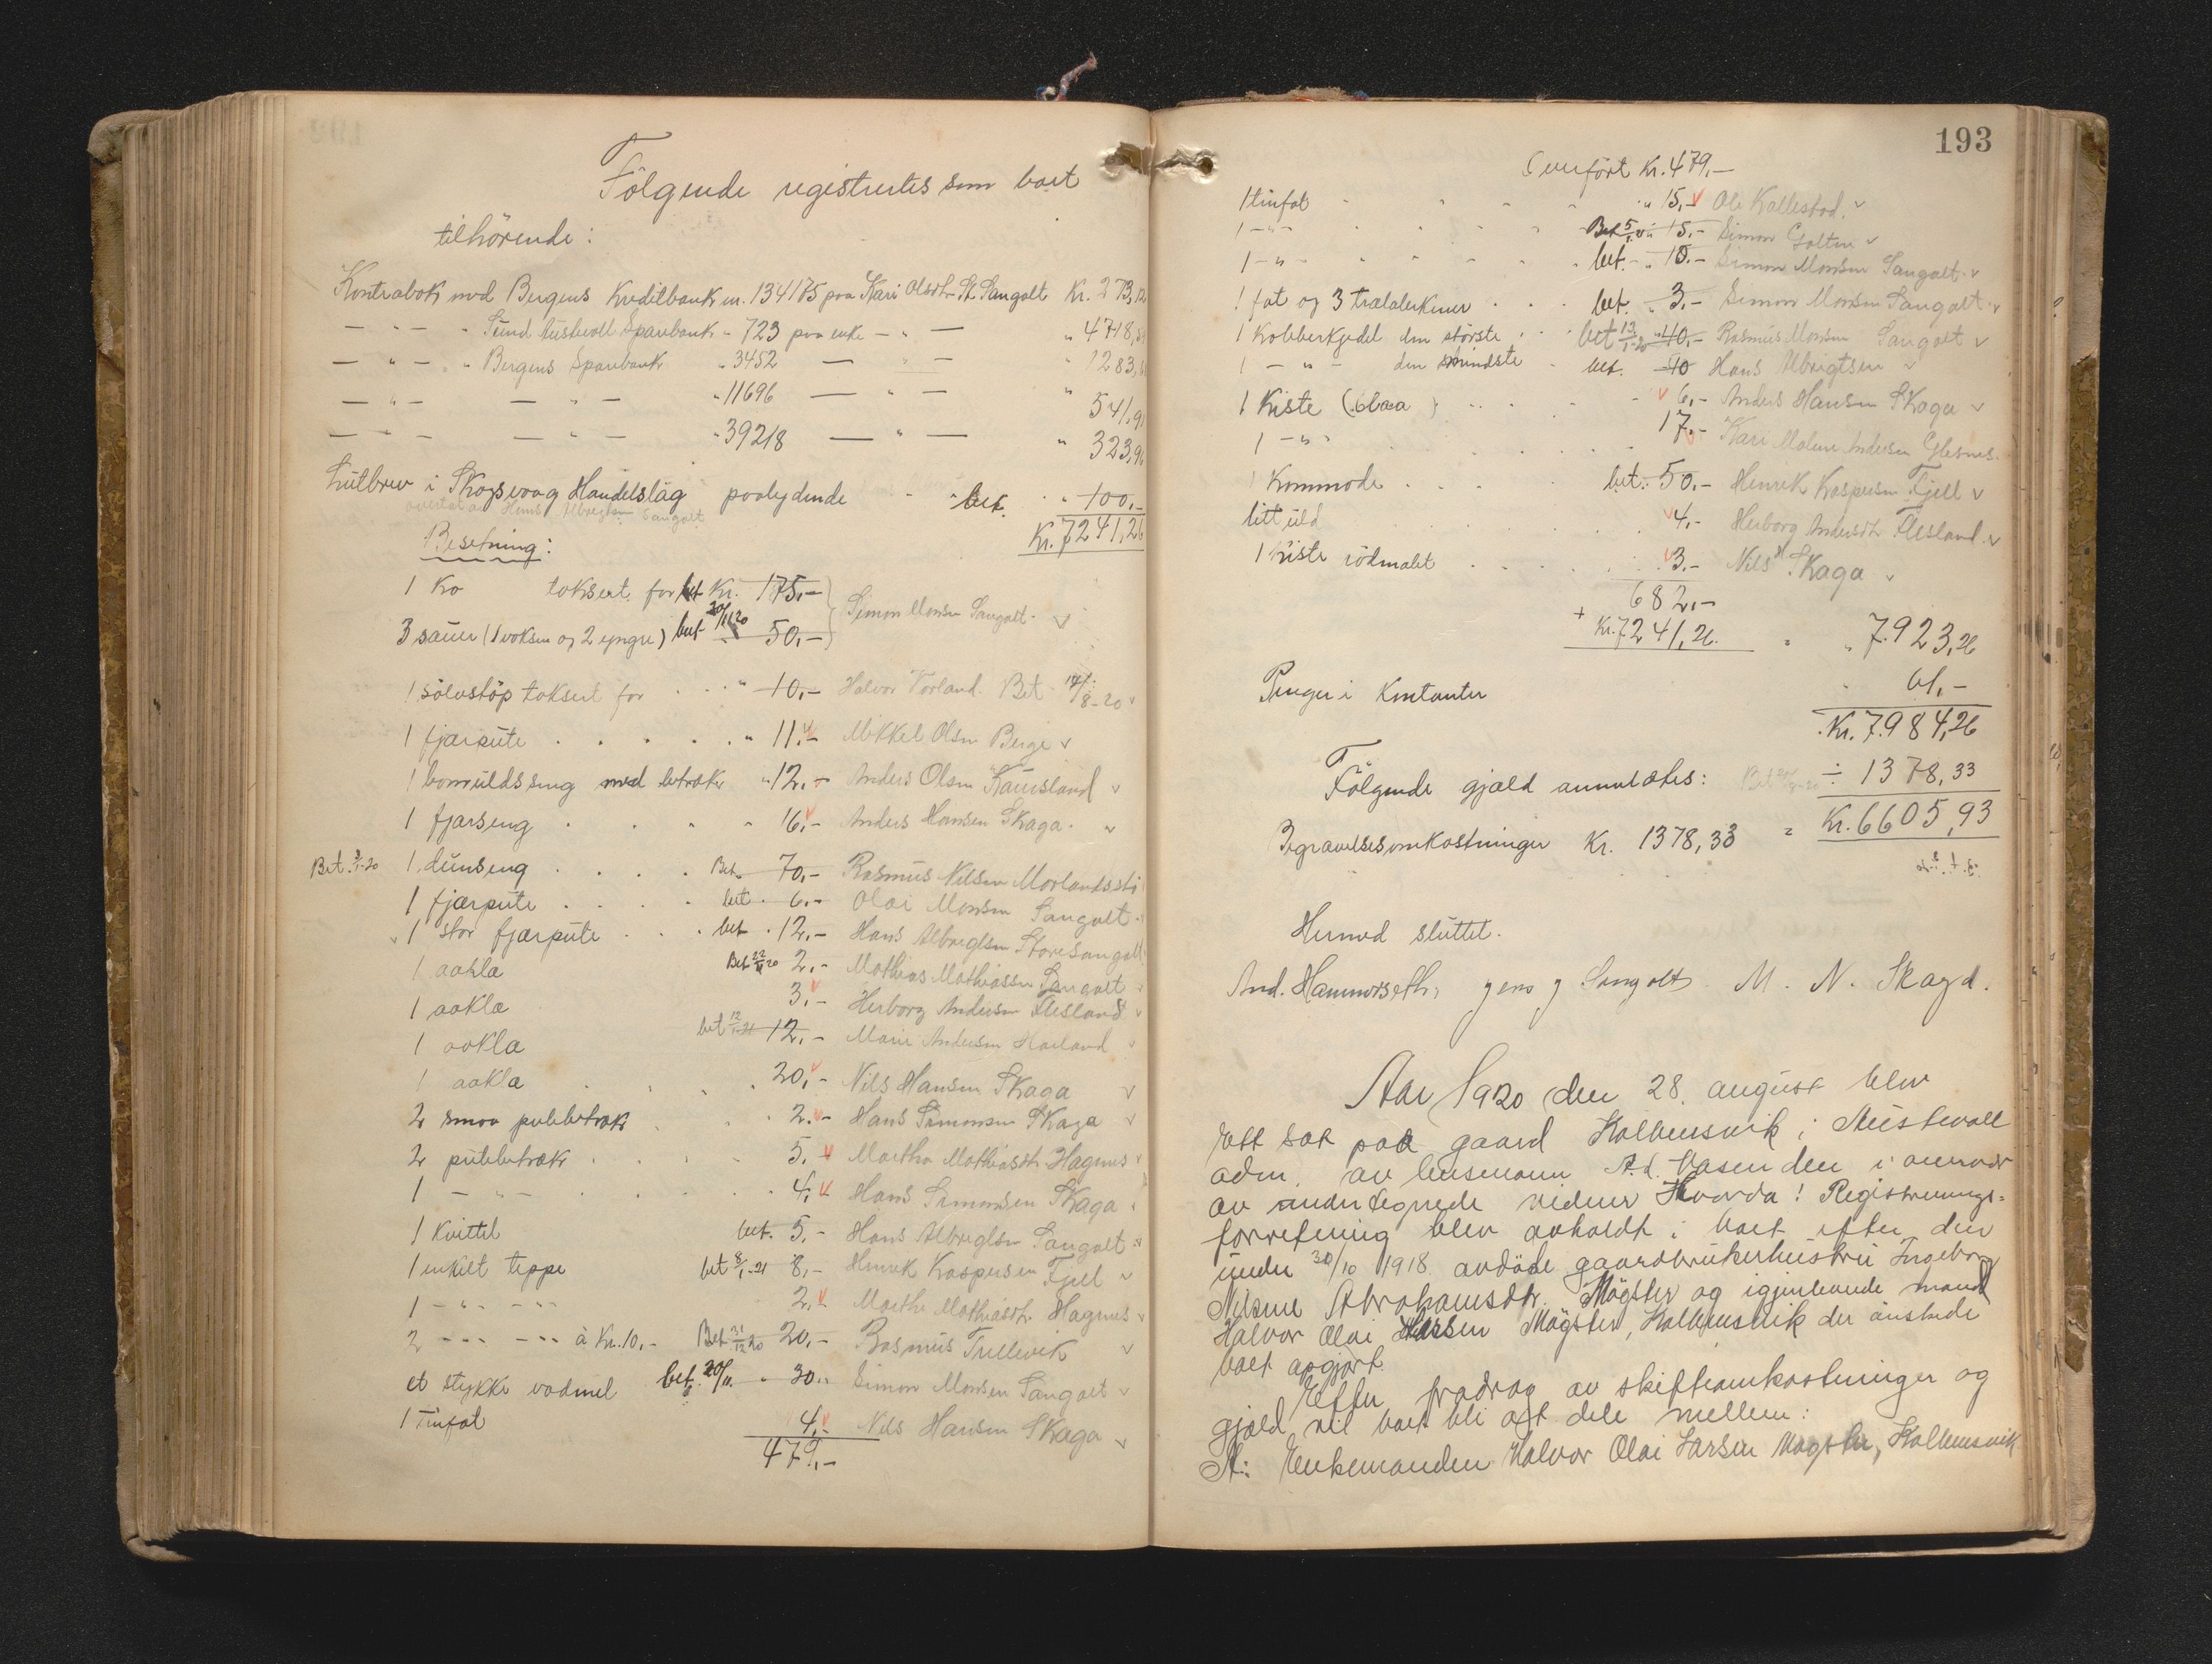 Følgende registrertes som boet
tilhørende:
Kontrabok med Bergens Kreditbank nr. 134175 paa Kari Olsdtr. St. Sangolt Kr. 273,12
— " — " Sund Austevoll Sparebank " 723 paa enke — " — " 4718,
— " — " Bergens Sparebank " 3452 — " — " 1283,
— " — — " — " 11696 — " — " 541,9
— " — — " — " 39218 — " — " 323,96
Lutbrev i Skogsvaag Handelslag paalydende bet. " 100,-
overtat av Hans Albregtsen Sangolt
Kr. 7241,26
Besetning:
1 ko taksert for bet Kr. 175,-
3 sauer (1 voksen og 2 yngre) bet 20/11 20 50,- Simon Monsen Sangolt v
1 sølvstøp taksert for " 10,- Halvor Vorland. Bet 14/8-20 v
1 fjærpute " 11,- Mikkel Olsen Berge v
1 bomuldsseng med betræk " 12,- Anders Olsen Kausland v
1 fjærseng " 16,- Anders Hansen Skaga v
Bet. 3/1-20 1 dunseng Bet. 70,- Rasmus Nilsen Morlandsstø
1 fjærpute bet. 6,- Olai Monsen Sangolt
1 stor fjærpute bet 12,- Hans Albregtsen Store Sangolt
1 aakla Bet 22/11 20 2,- Mathias Mathiassen Sangolt
1 aakla 3,- Herborg Andersen Flesland v
1 aakla bet 12/1-21 12,- Marie Andersen Havland
1 aakla 20,- Nils Hansen Skaga v
2 smaa putebetræk 2,- Hans Simonsen Skaga v
2 putebetræk 5,- Martha Mathiasdtr. Hagnes v
1 — " — 4,- Hans Simonsen Skaga
1 kvittel bet. 5,- Hans Albregtsen Sangolt v
1 enkelt teppe bet 8/1-21 8,- Henrik Kaspersen Fjell v
1 — " — " 2,- Marthe Mathiasdtr. Hagnes v
2 — " — " à Kr. 10,- Bet 31/12 20 20,- Rasmus Trellevik v
et stykke vadmel bet. 20/11. " 30,- Simon Monsen Sangolt v
1 Tinfat 4,- Nils Hansen Skaga v
479,-
193
Overført Kr. 479,-
1 tinfat " 15,- Ole Kallestad. v
1 — " — Bet 5/1 15,- Simon Golten v
1 — " — bet. " 10,- Simon Monsen Sangolt v
1 fat og 3 trætalerkener bet. " 3,- Simon Monsen Sangolt v
1 kobberkjedel den største bet 13/1-20 " 40,- Rasmus Monsen Sangolt v
1 — " — den mindste bet. 40 Hans Albrigtsen v
1 Kiste (blaa) 6,- Anders Hansen Skaga v
1 — " — 17,- Kari Malene Andersen Glesnes.
1 Kommode bet. 50,- Henrik Kaspersen Fjell v
litt uld 4,- Herborg Andersdtr Flesland v
1 Kiste rødmalt 3,- Nils H. Skaga v
682,-
+ Kr. 7241,26. " 7.923,26
Penger i kontanter 61,-
Kr. 7.984,26
Følgende gjæld anmeldtes: ÷ 1378,33
Begravelsesomkostninger Kr. 1378,33 = Kr. 6605,93
Hermed sluttet.
And. Hammerseth, Jens J Sangolt M. N. Skaga.
Aar 1920 den 28. august blev
rett sat paa gaard Kalvensvik i Austevoll
adm. av lensmann A.d. Vasenden i overvær
av undertegnede vedner Hvorda! Registrerings-
forretning blev avholdt i boet efter den
under 30/10 1918 avdøde gaardbrukerhustru Ingeborg
Nikoline Abrahamsdtr. Møgster og igjenlevende mand
Halvor Olai Larsen Møgster, Kalvensvik der ønskede
boet opgjort.
Efter fradrag av skifteomkostninger og
gjæld vil boet bli at dele mellem:
A: Enkemanden Halvor Olai Larsen Møgster, Kalvensvik